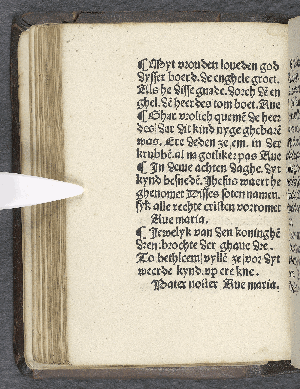 ¶ Myt vrouden loueden god
dysser boerd. de enghele groet.
Als he disse gnade. dorch dē en
ghel. dē heerdes tom boet. Aue
¶ Ghar vrolich quemē de heer
des. dar dat kind nyge ghebarē
was. Ere deden ze em. in der
krubbē. al na gotliker pas Aue
¶ In deme achten daghe. dyt
kynd besnedē. Jhesus waert he
ghenomet Disses soten namen.
syk alle rechte cristen vorromet
Aue maria.
¶ Jewelyk van den koninghē
dren. brochte der ghaue dre.
To bethleem vyllē ze vor dyt
weerde kynd. vp ere kne.
Pater noster Aue maria.